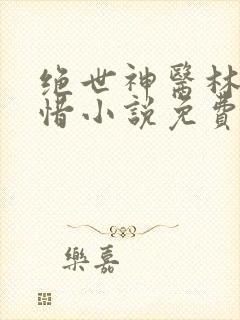 绝世神醫林
惜小說免費
樂嘉